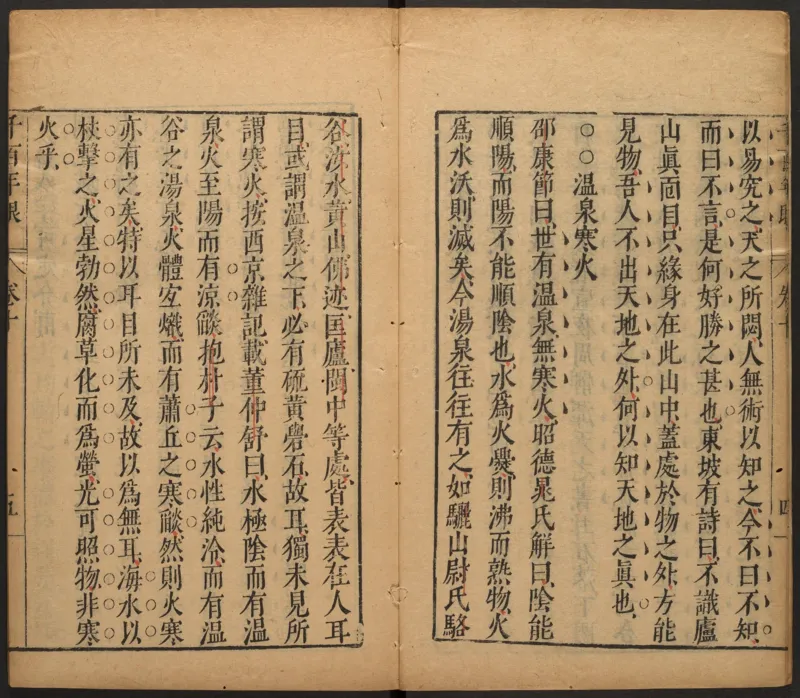 以易究之天之所閟人無術以知之今不曰不知
而曰不言是何好勝之甚也東坡有詩曰不識廬
山眞面目只緣身在此山中蓋處於物之外方能
見物吾人不出天地之外何以知天地之眞也
○○温泉寒火
邵康節曰世有温泉無寒火昭德晁氏解曰陰能
順陽而陽不能順陰也水爲火爨則沸而熟物火
爲水沃則滅矣今湯泉往往有之如驪山尉氏駱
谷汝水黄山佛迹匡廬閩中等處皆表表在人耳
目或謂温泉之下必有硫黄礜石故耳獨未見所
謂寒火按西京雜記載董仲舒曰水極陰而有温
泉火至陽而有涼燄抱朴子云水性純冷而有温
谷之湯泉火體宜熾而有蕭丘之寒燄然則火寒
亦有之矣特以耳目所未及故以爲無耳海水以
杖擊之火星勃然腐草化而爲螢光可照物非寒
火乎
千百年眼
卷十
五
四